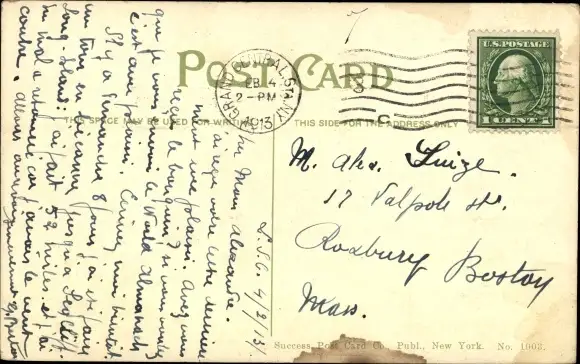 POST CARD
THIS SPACE MAY BE USED FOR WRITING
THIS SIDE FOR THE ADDRESS ONLY
GRAND CENTRAL STA. N.Y.
FEB 4
2-PM
1913
U.S. POSTAGE
1 CENT 1
M. Alex. Luize.
17 Walpole str.
Roxbury Boston
Mass.
4/2/13
Mon Alexandre.
J'ai reçu votre lettre dernière
plaisir. Avez vous
reçu le bouquin? si vous voulez
que je vous envoie le World Almanach
c'est avec plaisir. Ecrivez moi bientôt.
Il y a dimanche 8 jours j'ai été faire
un tour en
Long-Island. J'ai fait 52 milles et j'ai
eu mal à retourner car j'avais le vent
contre.
Success Post Card Co., Publ., New York. No. 1003.